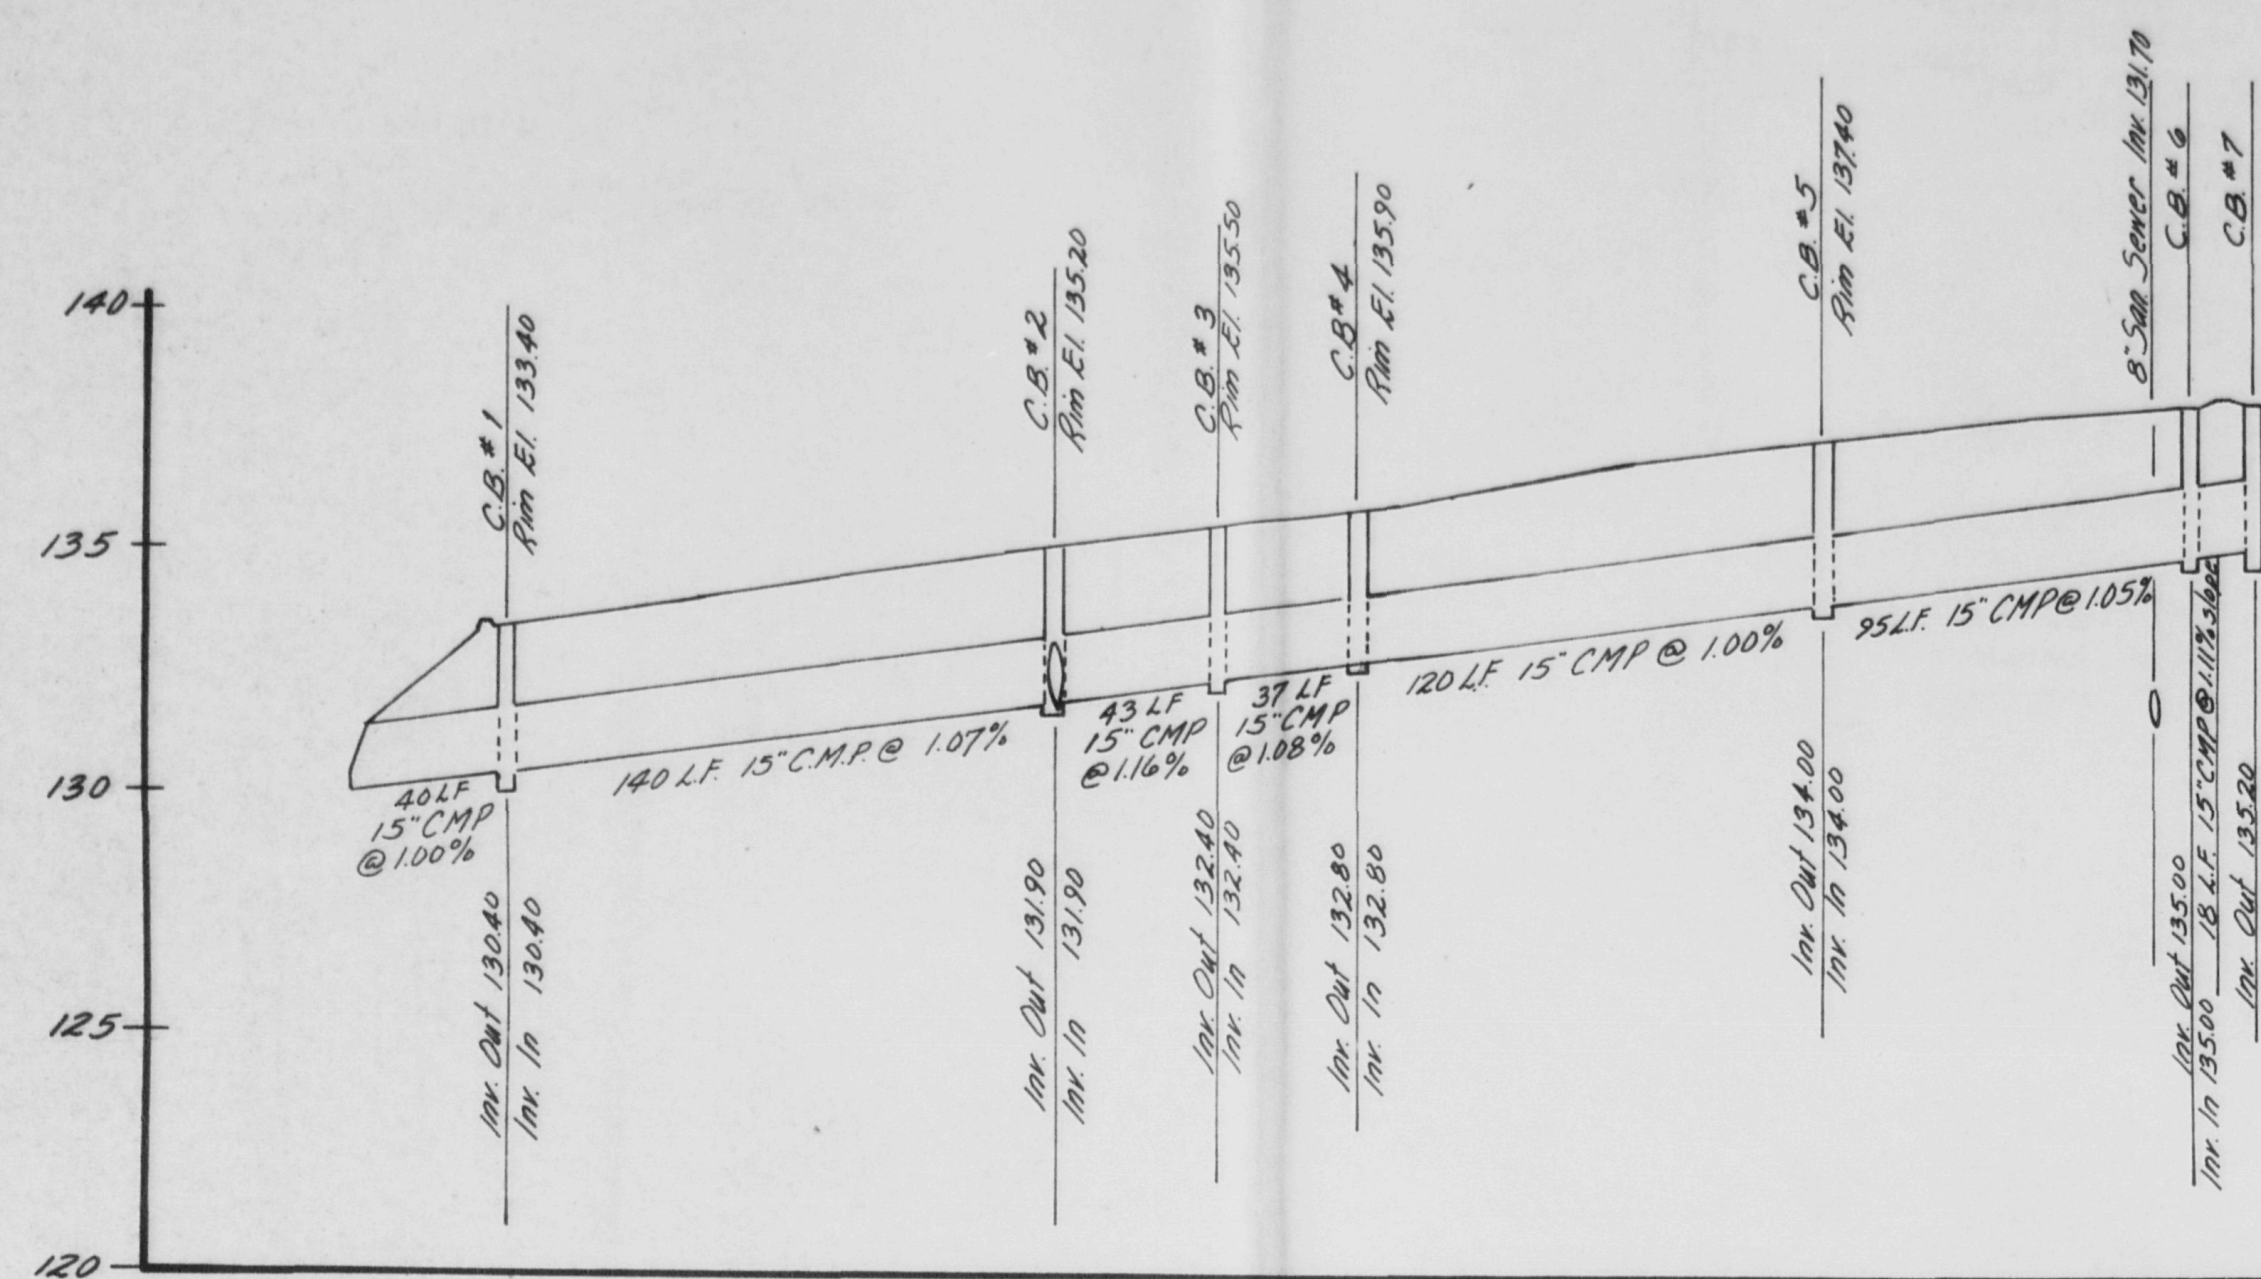 140
135
130
125
120
C.B. #1
Rim El. 133.40
C.B. #2
Rim El. 135.20
C.B. #3
Rim El. 135.50
C.B #4
Rim El. 135.90
C.B. #5
Rim El. 137.40
8" San. Sewer Inv. 131.70
C.B. #6
C.B. #7
40 LF
15" CMP
@ 1.00%
140 L.F. 15" C.M.P. @ 1.07%
43 LF
15" CMP
@ 1.16%
37 LF
15" CMP
@ 1.08%
120 L.F. 15" CMP @ 1.00%
95 L.F. 15" CMP @ 1.05%
18 L.F. 15" CMP @ 1.11% slope
Inv. Out 130.40
Inv. In 130.40
Inv. Out 131.90
Inv. In 131.90
Inv. Out 132.40
Inv. In 132.40
Inv. Out 132.80
Inv. In 132.80
Inv. Out 134.00
Inv. In 134.00
Inv. Out 135.00
Inv. In 135.00
Inv. Out 135.20